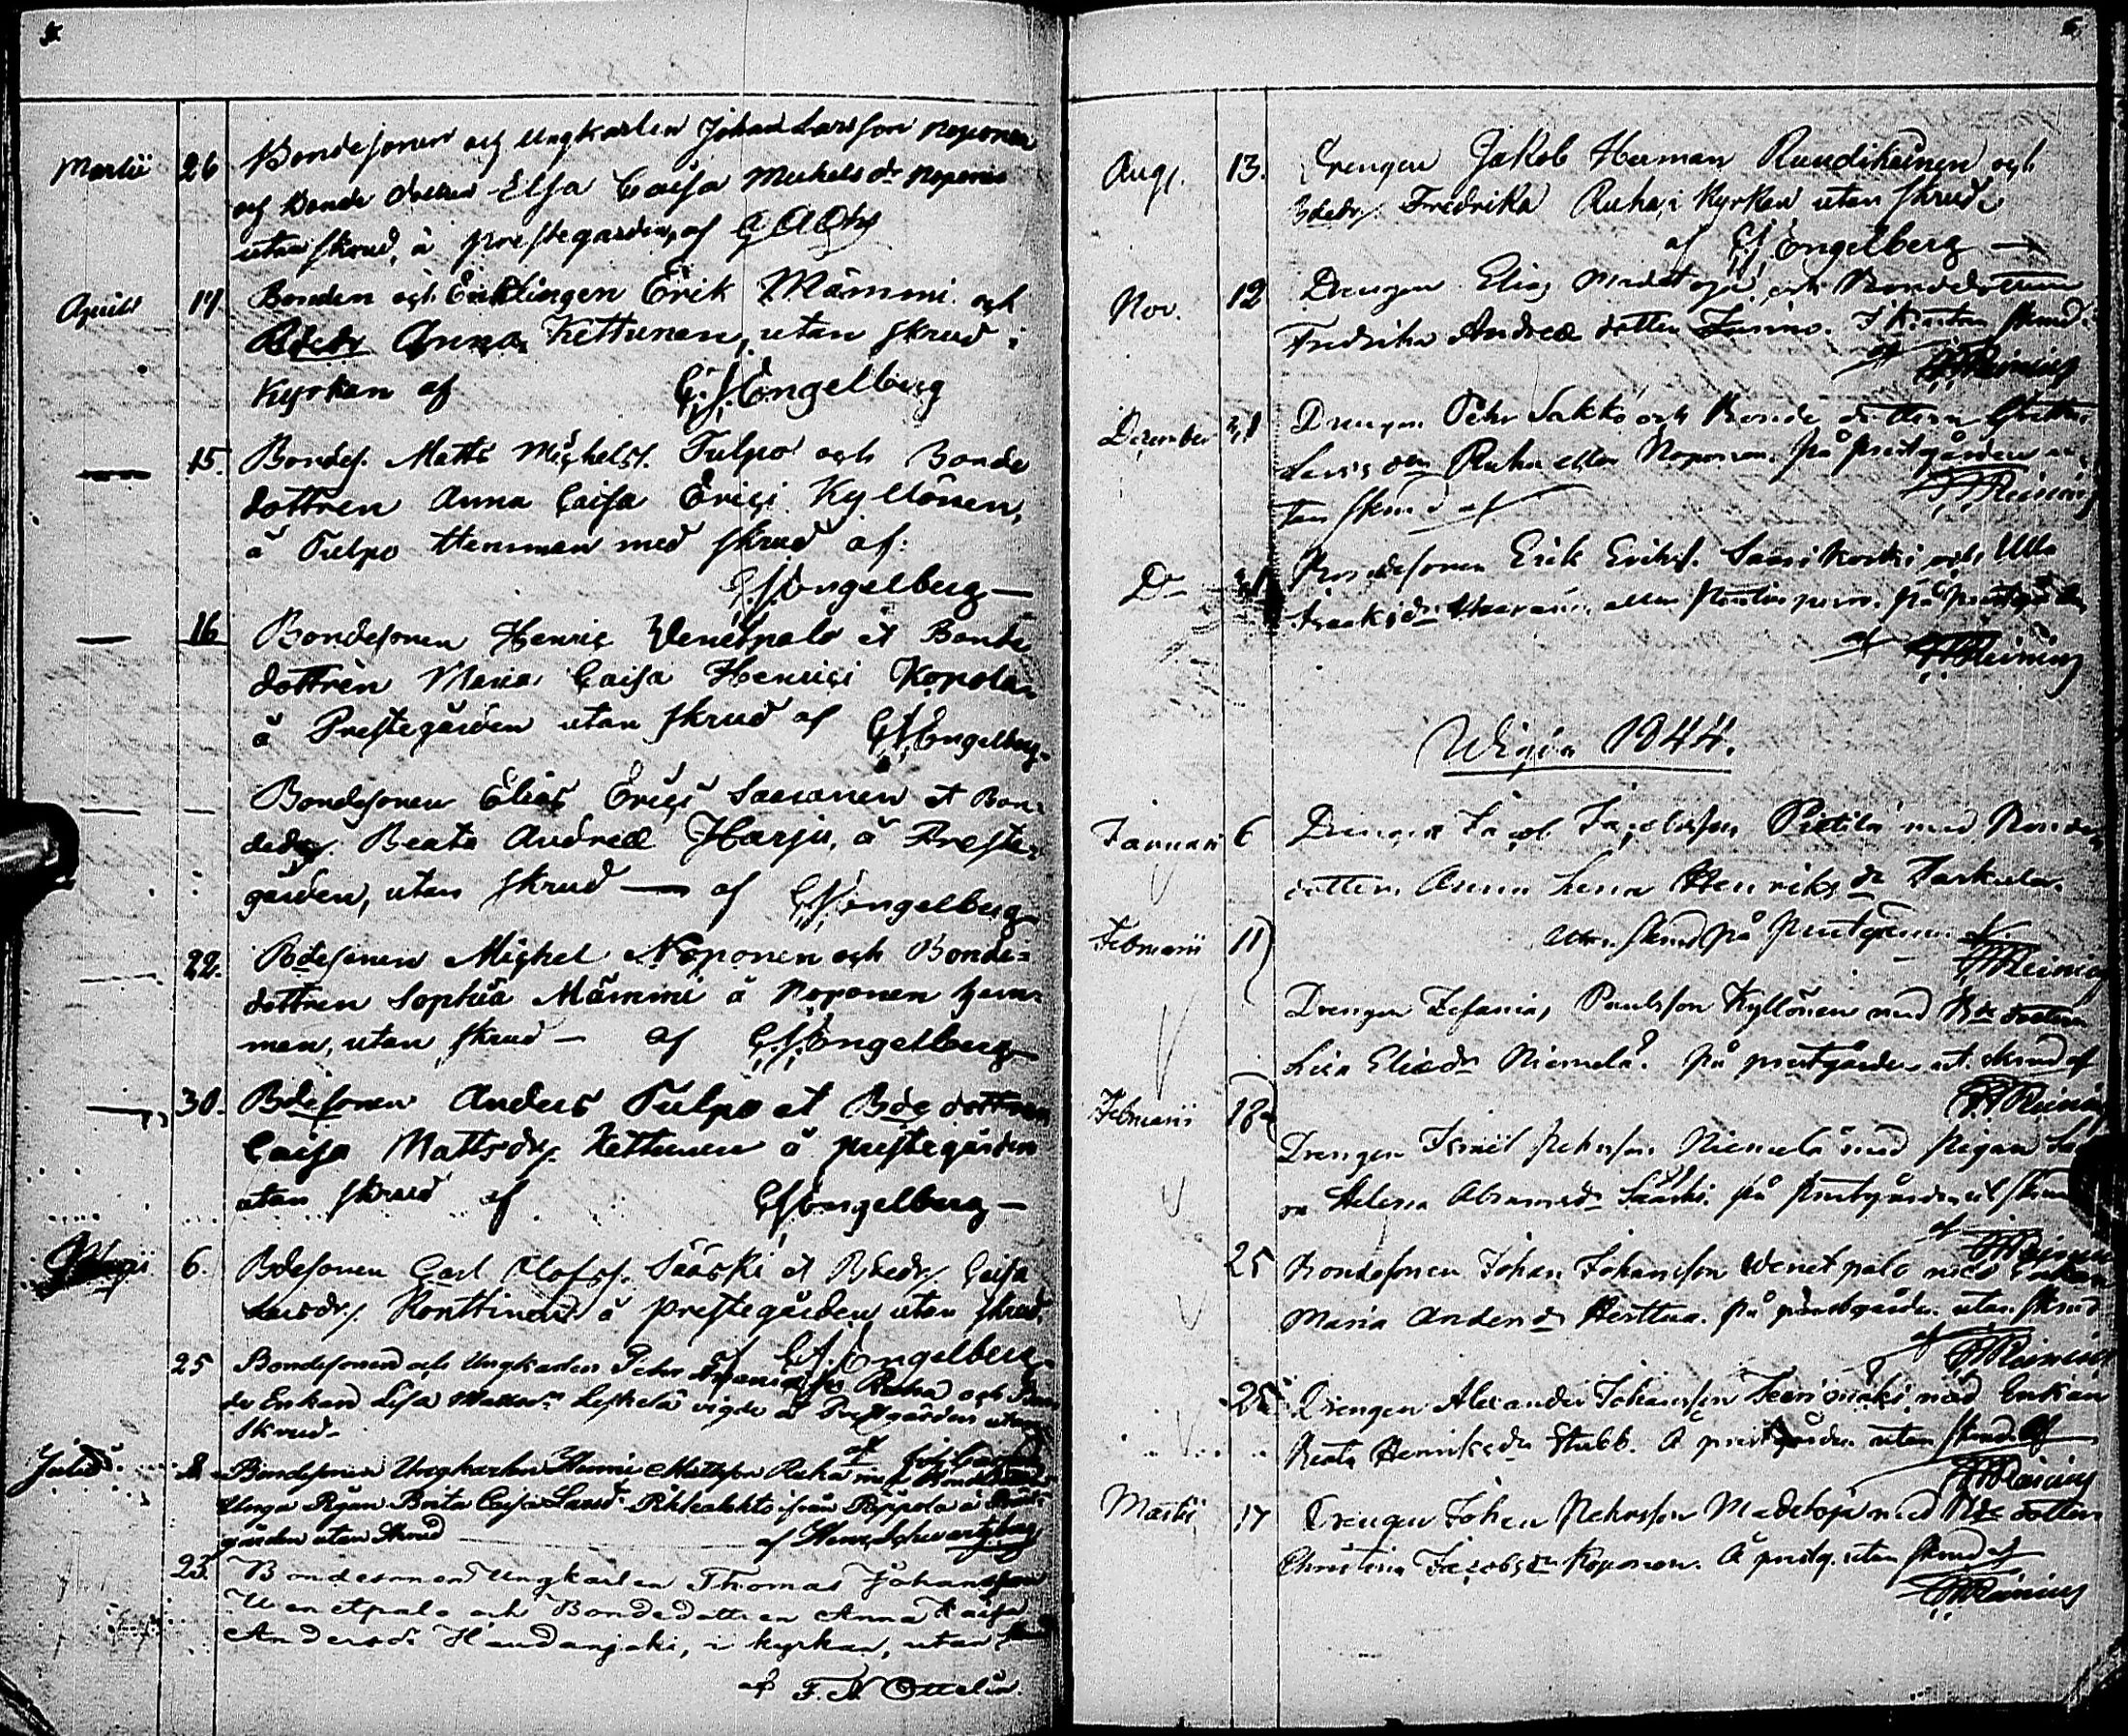 Martii 26 Bondesonen och Ungkarlen Johan Larsson Noponen
och Bonde dottren Elsa Caisa Michelsdr Noponen
utan skrud, å prestegården, af
Aprilis 17. Bonden och Enklingen Erik Mämmi och
Bdedr Anna Kettunen, utan skrud i
Kyrkan af Engelberg
15. Bondes. Matts Michelss. Tulpo och Bonde
dottren Anna Caisa Eriçi Kyllönen,
å Tulpo Hemman med skrud af:
Engelberg —
— 16 Bondesonen Henriç Venetpalo et Bonde
dottren Maria Caisa Henriçi Kopola
å Prestegården utan skrud af Engelberg
— — Bondesonen Elias Eriçi Saesanen et Bon-
dedr. Beata Andreæ Harju, å Preste-
gården, utan skrud — af Engelberg
22. Bdesonen Miçhel Noponen och Bonde-
dottren Sophia Mämmi å Noponen hem-
man, utan skrud — af Engelberg
30. Bdesonen Anders Tulpo et Bde dottren
Caisa Mattsdr. Kettunen å prestegården
utan skrud af Engelberg —
6. Bdesonen Carl Olofss. Sääski et Bdedr. Caisa
Larsdr. Ronttinen å prestegården utan skrud.
af Engelberg
25 Bondesonen och Ungkarlen Petter Ruha och
de Enkan Lisa Leskelä vigde å Prestgården utan
skrud.
Julii 2. Bondesonen Ungkarlen Henric Mattsson Ruha
Unga Pigan Brita Caisa Larsd. Pihlealehto ifrån Pippola å
gården utan skrud af
23. Bondesonen Ungkarlen Thomas Johansson
Wenetpalo och Bondedottren Anna Kaisa
Andersdr Haudanjoki, i kyrkan, utan
af F. N. Ottelin.
Aug. 13. Drengen Jakob Herman Rundikainen och
Bdedr. Fredrika Ruha, i Kyrkan utan skrud
af Engelberg —
Nov. 12 Drengen Elias Medetoja och Bondedottren
Fredrika Andreæ dotter
af Reinius
December 31 Drengen Pehr Sakko och Bonde dottren
Larsdn Ruha eller Noponen. på prestgården u-
tan skrud af Reinius
Do 31 Bondesonen Erik Eriks. Saarikoski och Ulla
eller på prestgården
af Reinius
Wigde 1844.
Januari 6 Drengen Jacob Jacobsson Pietilä med Bonde
dottern Anna Lena Henriksdr Tarkala.
utan skrud på prestgården af
Reinius
Februarii 11 Drengen Zefanias Paulsson Kyllönen med Bde dottern
Lisa Eliædr Niemelä. på prestgården ut. skrud af
Reinius
Februarii 18 Drengen Ismël Pehrsson Niemelä med pigan
Helena Abramsdr Sääski på prestgården ut. skrud
af Reinius
25 Bondesonen Johan Johansson Wenetpalo med Enkan
Maria Andersdr Herttua. På prestgården utan skrud
af Reinius
25 Drengen Alexander Johansson med Enkan
Beata Henriksdr Stubb. å prestgården utan skrud af
Reinius
Martii 17 Drengen Johan Pehrsson Medetoja med Bde dottern
Christina Jacobsdr Noponen. Å prestg. utan skrud af
Reinius